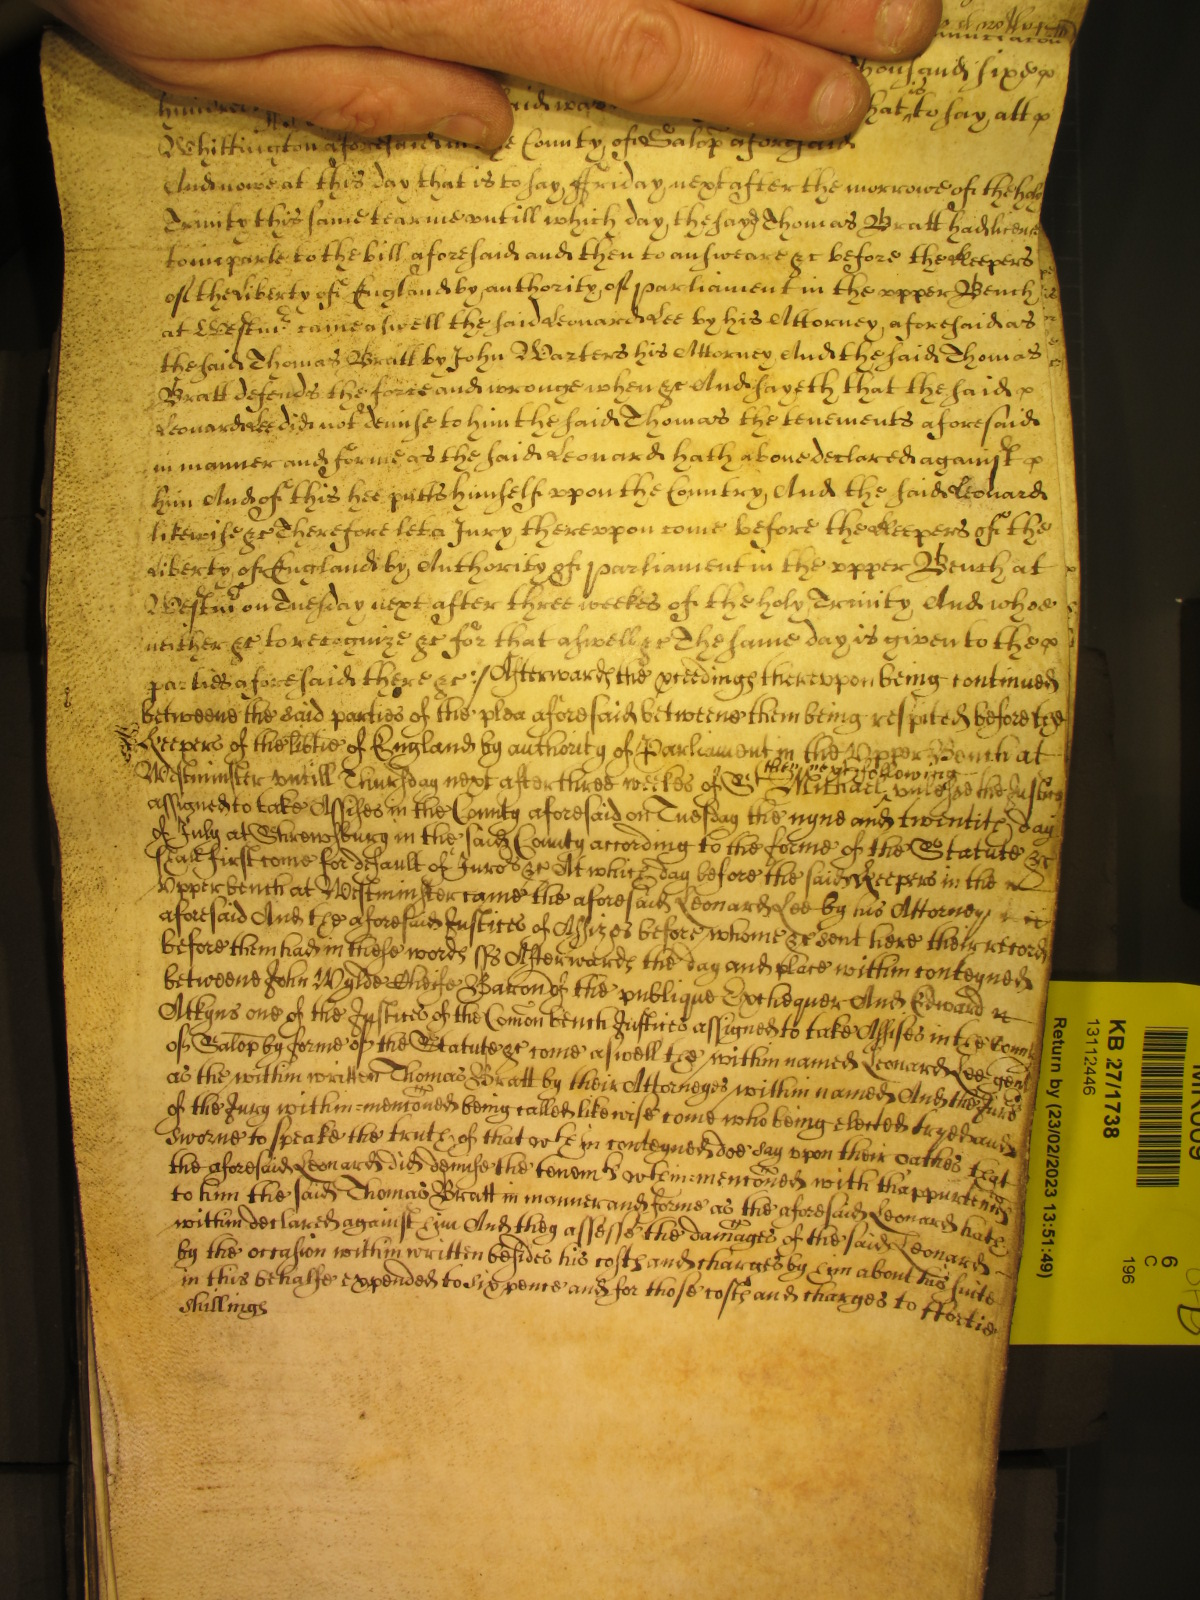 thousand six
hundred said was that is to say att
Whittington aforesaid in the County of Salop aforesaid
And nowe at this day that is to say ffriday next after the morrowe of the holy
Trinity this same tearme untill which day the sayd Thomas Bratt had licence
to imparle to the bill aforesaid and then to answeare &c before the Keepers
of the Liberty of England by authority of parliament in the upper Bench
at Westmr came aswell the said Leonard Lee by his Attorney aforesaid as
the said Thomas Bratt by John Warters his Attorney And the said Thomas
Bratt defends the force and wronge when &c And sayeth that the said
Leonard Lee did not demise to him the said Thomas the tenements aforesaid
in manner and forme as the said Leonard hath above declared against
him And of this hee putts himself uppon the Country And the said Leonard
likewise &c Therefore let a Jury thereupon come before the Keepers of the
Liberty of England by Authority of parliament in the upper Bench at
Westmr on Tuesday next after three weekes of the holy Trinity And whoe
neither &c to recognize &c for that aswell &c The same day is given to the
parties aforesaid there &c :/ Afterwards the pceedings thereupon being continued
betweene the said parties of the plea aforesaid betweene them being respited before the
Keepers of the libtie of England by authority of Parliament in the Upper Bench at
then next following
Westminster untill Thursday next after three weekes of St Michael unlesse the Justices
assigned to take Assises in the County aforesaid on Tuesday the nyne and twentith day
of July at Shrewsburg in the said County according to the forme of the Statute &c
shall first come for default of Jurors &c At which day before the said Keepers in the
Upper bench at Westminster came the aforesaid Leonard Lee by his Attorney
aforesaid And the aforesaid Justices of Assizes before whome &c sent here their record
before them had in these words ss Afterwards the day and place within conteyned
betweene John Wylde Cheife Barron of the publique Exchequer And Edward
Atkyns one of the Justices of the Comon bench Justices assigned to take Assises in the County
of Salop by forme of the Statute &c come aswell the within named Leonard Lee gent
as the within written Thomas Bratt by their Attorneyes within named And the Jurors
of the Jury within-mentoned being called likewise come who being elected tryed and
sworne to speake the truth of that wthin conteyned doe say upon their oathes that
the aforesaid Leonard did demise the tenemts wthin-mentoned with thappurtenncs
to him the said Thomas Bratt in manner and forme as the aforesaid Leonard hath
within declared against him And they assesse the damages of the said Leonard
by the occasion within written besides his costs and charges by him about his suite
in this behalfe expended to sixpence and for those costs and charges to ffortie
shillings
KB 27/1738
13112446
Return by (23/02/2023 13:51:49)
6
C
196